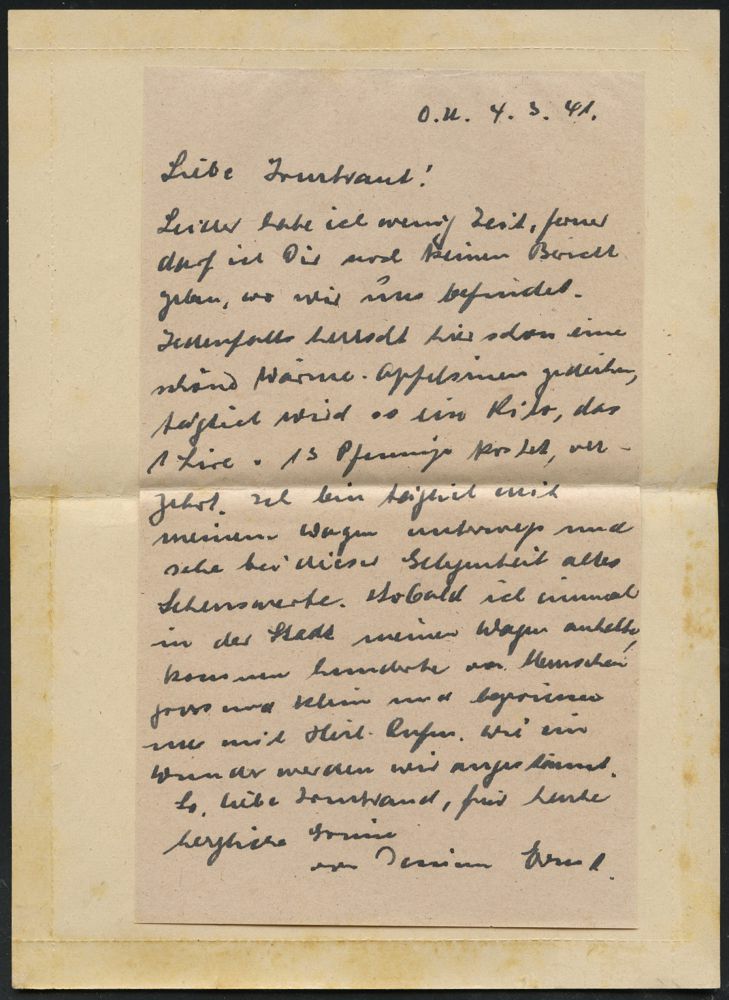 O.U. 4. 3. 41.
Liebe Irmtraut!
Leider habe ich wenig Zeit, ferner
darf ich Dir noch keinen Bericht
geben, wo wir uns befinden.
Jedenfalls herrscht hier schon eine
schöne Wärme. Apfelsinen gedeihen,
täglich wird so ein Kilo, das
1 Lire = 13 Pfennige kostet, ver-
zehrt. Ich bin täglich mit
meinem Wagen unterwegs und
sehe bei dieser Gelegenheit alles
Sehenswerte. Sobald ich einmal
in der Stadt meinen Wagen anhalte,
kommen hunderte von Menschen
gross und klein und begrüssen
uns mit Heil-Rufen. Wie ein
Wunder werden wir angestaunt.
So, liebe Irmtraud, für heute
herzliche Grüsse
von Deinem Ernst.